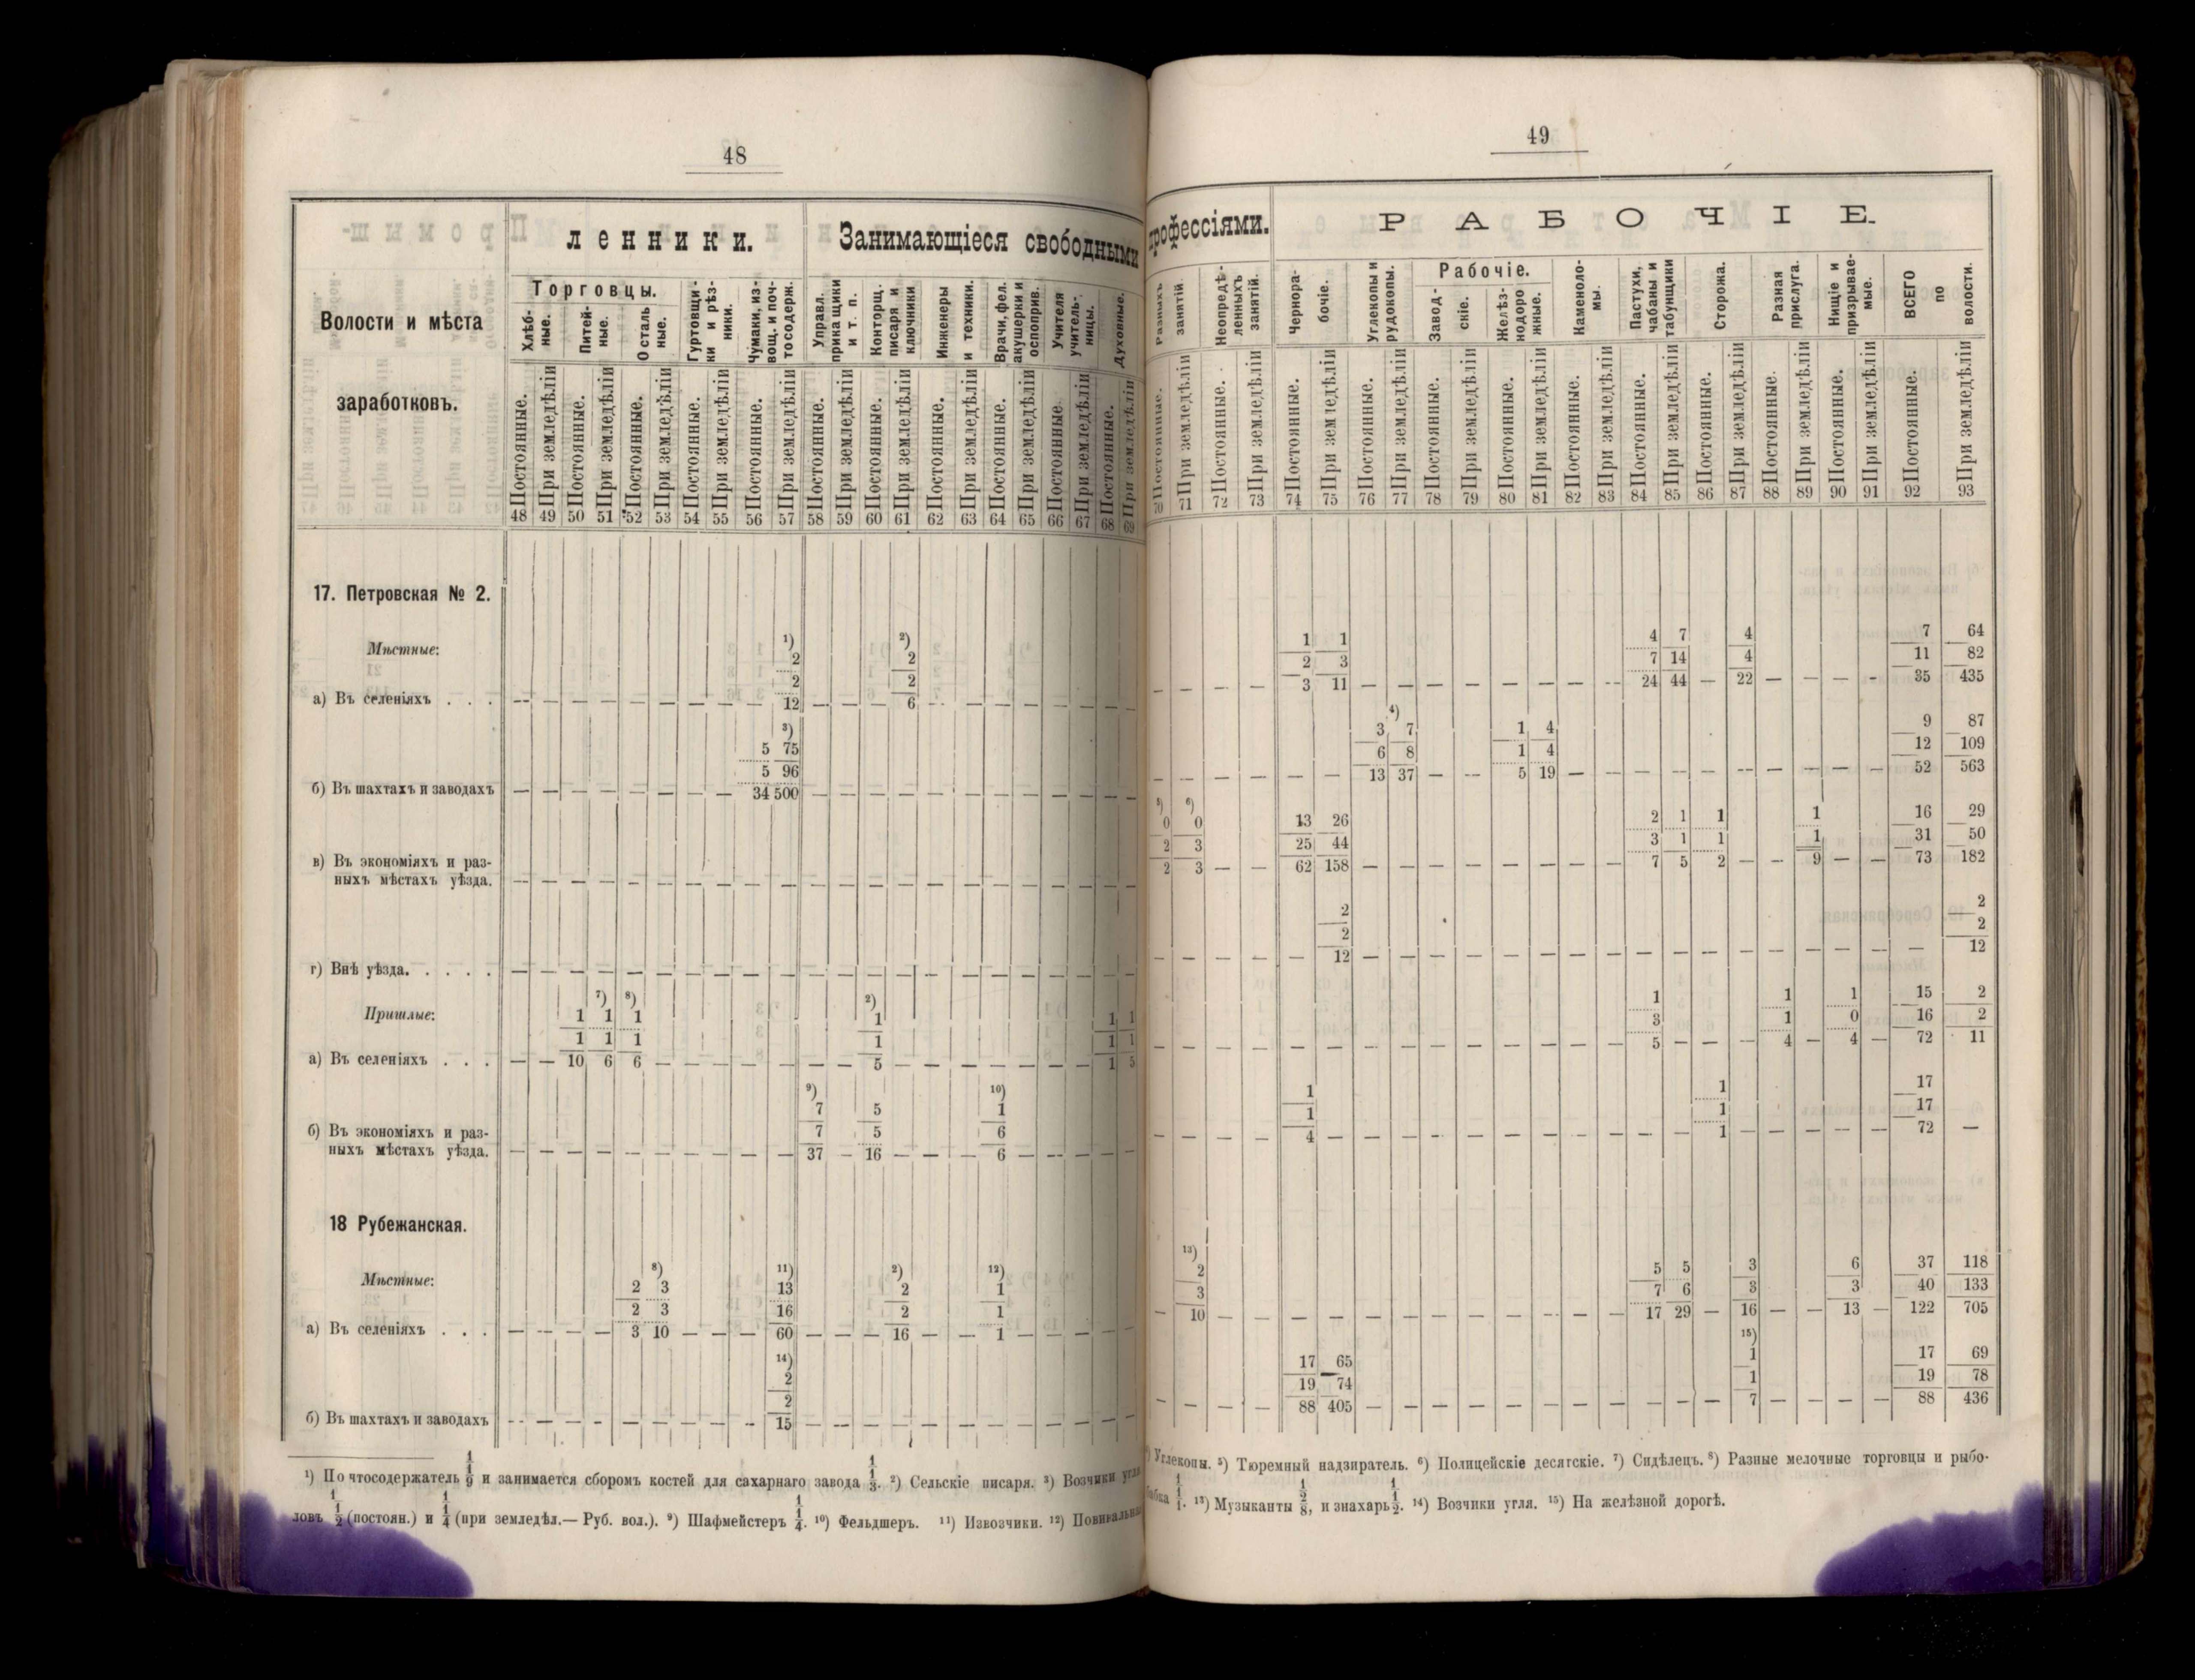 48
ленники.
Занимающіеся свободными
Волости и мѣста
заработковъ.
Торговцы.
Хлѣб-
ные.
Питей-
ные.
Осталь
ные.
Гуртовщи-
ки и рѣз-
ники.
Чумаки, из-
вощ. и поч-
тосодерж.
Управл.
прикащики
и т. п.
Конторщ.
писаря и
ключники
Инженеры
и техники.
Врачи, фел.
акушерки и
оспоприв.
Учителя
учитель-
ницы.
Духовные.
Постоянные. При земледѣліи Постоянные. При земледѣліи Постоянные. При земледѣліи Постоянные. При земледѣліи Постоянные. При земледѣліи Постоянные. При земледѣліи Постоянные. При земледѣліи Постоянные. При земледѣліи Постоянные. При земледѣліи Постоянные При земледѣліи Постоянные. При земледѣліи
48 49 50 51 52 53 54 55 56 57 58 59 60 61 62 63 64 65 66 67 68 69
17. Петровская № 2.
Мѣстные:
¹) ²)
2 2
2 2
а) Въ селеніяхъ . . . — — — — — — — — — 12 — — — 6 — — — — — — — —
³)
5 75
5 96
б) Въ шахтахъ и заводахъ — — — — — — — — 34 500 — — — — — — — — — — — —
в) Въ экономіяхъ и раз-
ныхъ мѣстахъ уѣзда. — — — — — — — — — — — — — — — — — — — — — —
г) Внѣ уѣзда. . . . . — — — — — — — — — — — — — — — — — — — — — —
Пришлые:
⁷) ⁸) ²)
1 1 1 1 1 1
1 1 1 1 1 1
а) Въ селеніяхъ . . . — — 10 6 6 — — — — — — — 5 — — — — — — — 1 5
⁹) ¹⁰)
7 5 1
7 5 6
б) Въ экономіяхъ и раз-
ныхъ мѣстахъ уѣзда. — — — — — — — — — — 37 — 16 — — — 6 — — — — —
18 Рубежанская.
Мѣстные:
⁸) ¹¹) ²) ¹²)
2 3 13 2 1
2 3 16 2 1
а) Въ селеніяхъ . . . — — — — 3 10 — — — 60 — — — 16 — — 1 — — — — —
¹⁴)
2
2
б) Въ шахтахъ и заводахъ — — — — — — — — — 15 — — — — — — — — — — — —
¹) Почтосодержатель 1/1/9 и занимается сборомъ костей для сахарнаго завода 1/1/3. ²) Сельскіе писаря. ³) Возчики угля
ловъ 1/1/2 (постоян.) и 1/1/4 (при земледѣл.— Руб. вол.). ⁹) Шафмейстеръ 1/1/4. ¹⁰) Фельдшеръ. ¹¹) Извозчики. ¹²) Повивальная
49
профессіями.
РАБОЧІЕ.
Разныхъ
занятій.
Неопредѣ-
ленныхъ
занятій.
Чернора-
бочіе.
Углекопы и
рудокопы.
Рабочіе.
Завод-
скіе.
Желѣз-
нодоро
жные.
Каменоло-
мы.
Пастухи,
чабаны и
табунщики
Сторожа.
Разная
прислуга.
Нищіе и
призрывае-
мые.
ВСЕГО
по
волости.
Постоянные. При земледѣліи Постоянные. При земледѣліи Постоянные. При земледѣліи Постоянные. При земледѣліи Постоянные. При земледѣліи Постоянные. При земледѣліи Постоянные. При земледѣліи Постоянные. При земледѣліи Постоянные. При земледѣліи Постоянные. При земледѣліи Постоянные. При земледѣліи Постоянные. При земледѣліи
70 71 72 73 74 75 76 77 78 79 80 81 82 83 84 85 86 87 88 89 90 91 92 93
1 1 4 7 4 7 64
2 3 7 14 4 11 82
— — — — 3 11 — — — — — — — — 24 44 — 22 — — — — 35 435
⁴)
3 7 1 4 9 87
6 8 1 4 12 109
— — — — — — 13 37 — — 5 19 — — — — — — — — — — 52 563
⁵) ⁶)
0 0 13 26 2 1 1 1 16 29
2 3 25 44 3 1 1 1 31 50
2 3 — — 62 158 — — — — — — — — 7 5 2 — — 9 — — 73 182
2 2
2 2
— — — — — 12 — — — — — — — — — — — — — — — — — 12
1 1 1 15 2
3 1 0 16 2
— — — — — — — — — — — — — — 5 — — — 4 — 4 — 72 11
1 1 17
1 1 17
— — — — 4 — — — — — — — — — — — 1 — — — — — 72 —
¹³)
2 5 5 3 6 37 118
3 7 6 3 3 40 133
— 10 — — — — — — — — — — — — 17 29 — 16 — — 13 — 122 705
¹⁵)
17 65 1 17 69
19 74 1 19 78
— — — — 88 405 — — — — — — — — — — — 7 — — — — 88 436
⁴) Углекопы. ⁵) Тюремный надзиратель. ⁶) Полицейскіе десятскіе. ⁷) Сидѣлецъ. ⁸) Разные мелочные торговцы и рыбо-
бабка 1/1/1. ¹³) Музыканты 1/2/8, и знахарь 1/1/2. ¹⁴) Возчики угля. ¹⁵) На желѣзной дорогѣ.